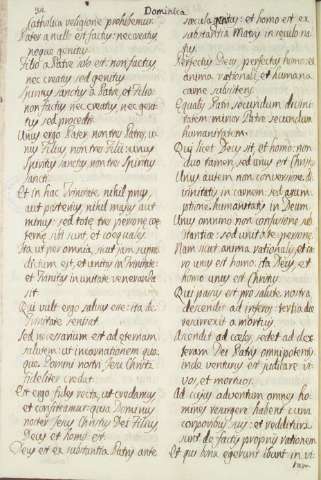 94
Dominica
catholica religione prohibemur.
Pater a nullo est factus: nec creatus
neque genitus.
Filio a Patre solo est: non factus
nec creatus sed genitus.
Spiritus sanctus a Patre, et Filio:
non factus nec creatus nec geni-
tus sed procedit.
Unus ergo Pater, non tres Patres, u-
nus Filius, non tres Filii: unus
Spiritus sanctus, non tres Spiritus
sancti.
Et in hac Trinitate, nihil prius,
aut posterius, nihil maius aut
minus: sed tote tres persone coe-
terne sibi sunt et coequales.
Ita ut per omnia, sicut jam supra
dictum est, et unitas in Trinitate:
et Trinitas in unitate veneranda
sit.
Qui vult ergo salvus esse: ita de
Trinitate sentiat.
Sed necessarium est ad eternam
salutem: ut incarnationem quo-
que Domini nostri Jesu Christi
fideliter credat.
Est ergo fides recta, ut credamus
et confiteamur: quia Dominus
noster Jesus Christus Dei Filius
Deus et homo est.
Deus est ex substantia Patris ante
secula genitus: et homo est ex
substantia Matris in seculo na-
tus.
Perfectus Deus, perfectus homo: ex
anima rationali, et humana
carne subsistens.
Equalis Patri secundum divini-
tatem: minor Patre secundum
humanitatem.
Qui licet Deus sit, et homo: non
duo tamen, sed unus est Christus
Unus autem non conversione di-
vinitatis in carnem: sed assum-
ptione humanitatis in Deum.
Unus omnino non confusione sub-
stantie: sed unitate persone.
Nam sicut anima rationalis, et ca-
ro unus est homo: ita Deus, et
homo unus est Christus.
Qui passus est pro salute nostra,
descendit ad inferos: tertia die
resurrexit a mortuis.
Ascendit ad cœlos, sedet ad dex-
teram Dei Patris omnipotentis
inde venturus est judicare vi-
vos, et mortuos.
Ad cujus adventum omnes ho-
mines resurgere habent cum
corporibus suis: et reddituri
sunt de factis propriis rationem
Et qui bona egerunt ibunt in vi-
tam